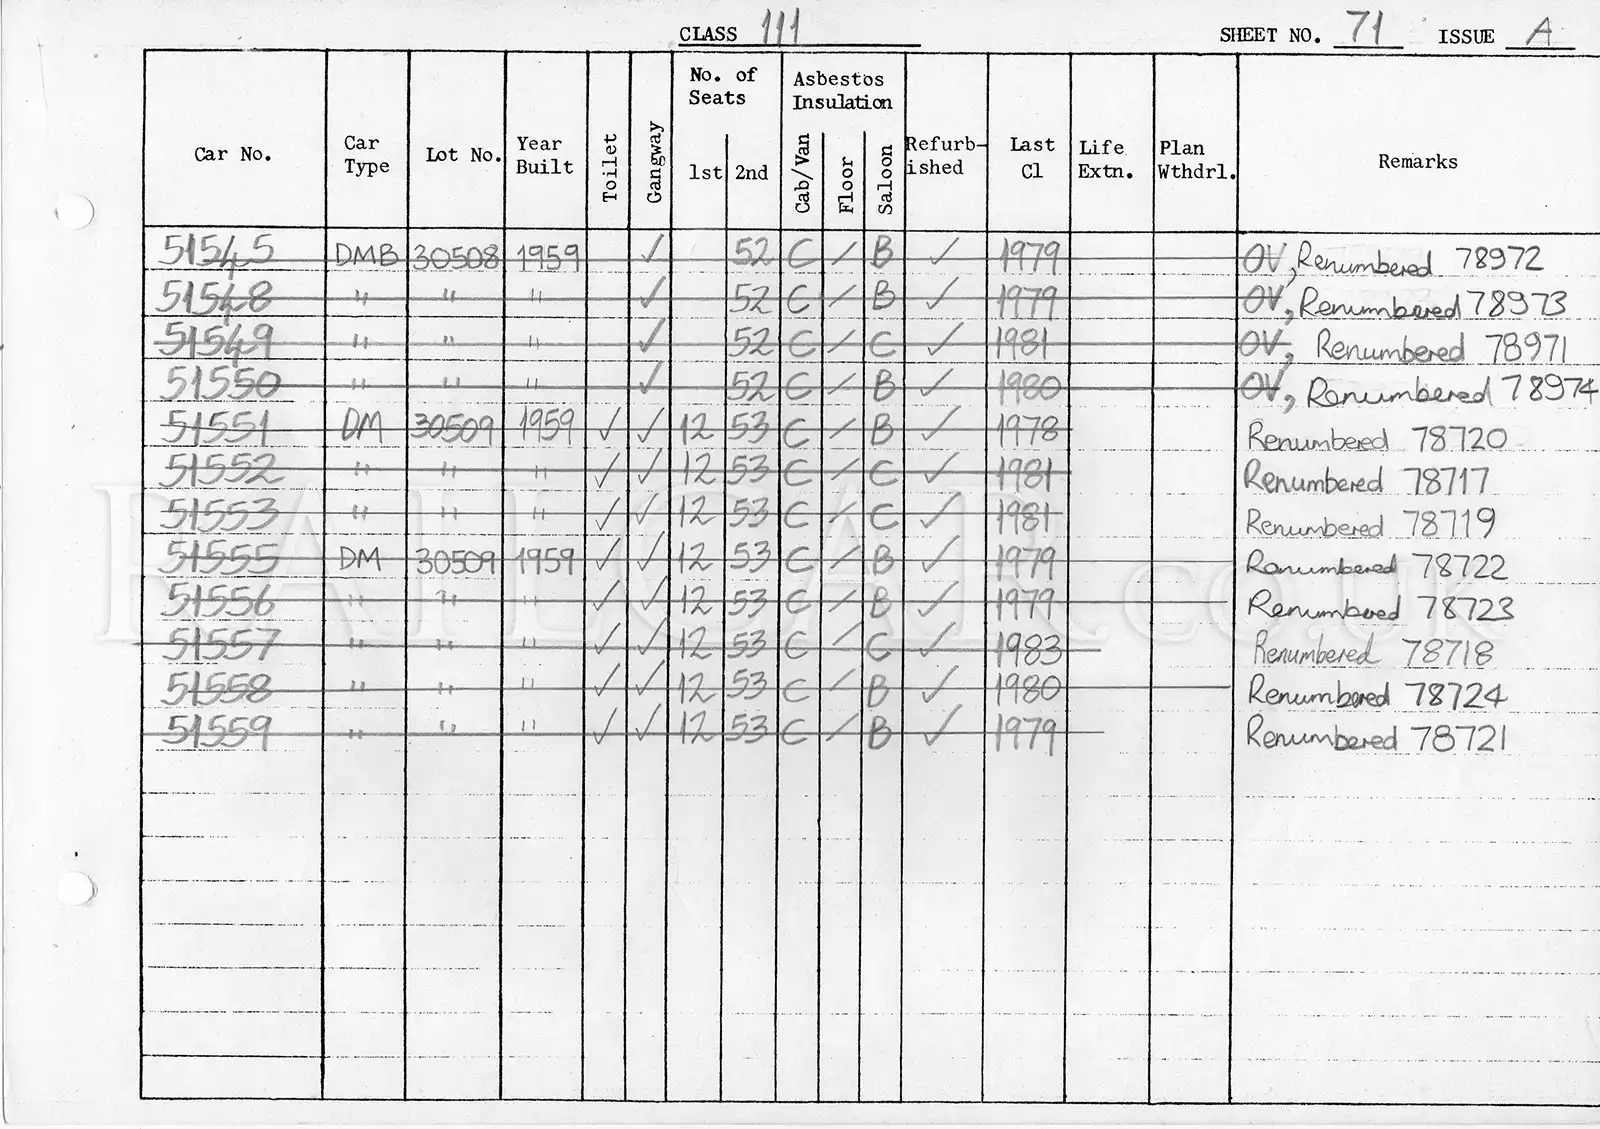 CLASS 111 SHEET NO. 71 ISSUE A
Car No. Car Type Lot No. Year Built Toilet Gangway No. of Seats 1st 2nd Asbestos Insulation Cab/Van Floor Saloon Refurb-ished Last Cl Life Extn. Plan Wthdrl. Remarks
51545 DMB 30508 1959 ✓ 52 C / B ✓ 1979 OV, Renumbered 78972
51548 " " " ✓ 52 C / B ✓ 1979 OV, Renumbered 78973
51549 " " " ✓ 52 C / C ✓ 1981 OV, Renumbered 78971
51550 " " " ✓ 52 C / B ✓ 1980 OV, Renumbered 78974
51551 DM 30509 1959 ✓ ✓ 12 53 C / B ✓ 1978 Renumbered 78720
51552 " " " ✓ ✓ 12 53 C / C ✓ 1981 Renumbered 78717
51553 " " " ✓ ✓ 12 53 C / C ✓ 1981 Renumbered 78719
51555 DM 30509 1959 ✓ ✓ 12 53 C / B ✓ 1979 Renumbered 78722
51556 " " " ✓ ✓ 12 53 C / B ✓ 1979 Renumbered 78723
51557 " " " ✓ ✓ 12 53 C / C ✓ 1983 Renumbered 78718
51558 " " " ✓ ✓ 12 53 C / B ✓ 1980 Renumbered 78724
51559 " " " ✓ ✓ 12 53 C / B ✓ 1979 Renumbered 78721
RAILCAR.co.uk